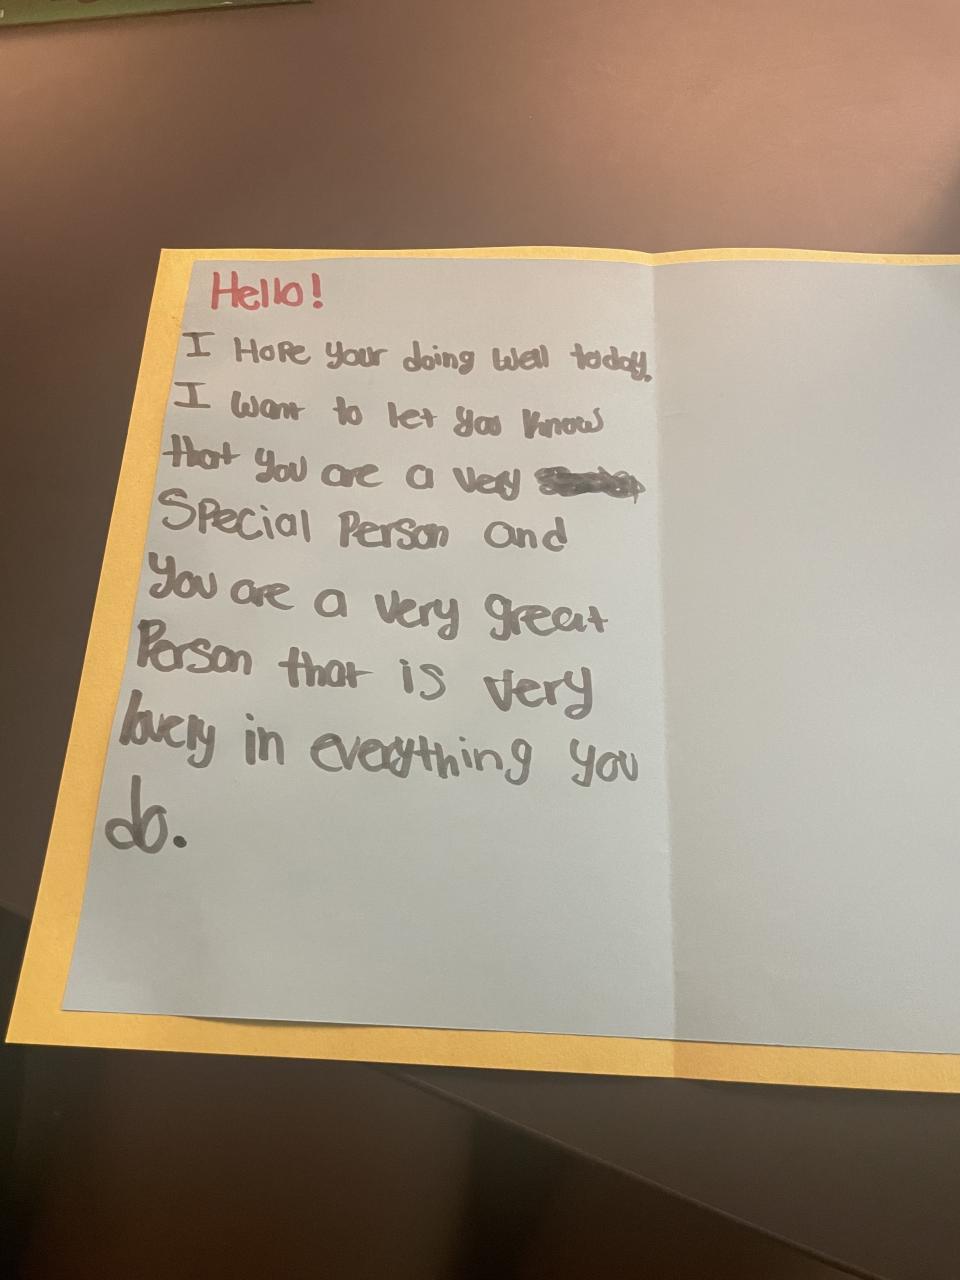 Hello!
I Hope your doing well today.
I want to let you know
that you are a very
Special Person and
You are a very great
Person that is very
lovely in everything you
do.